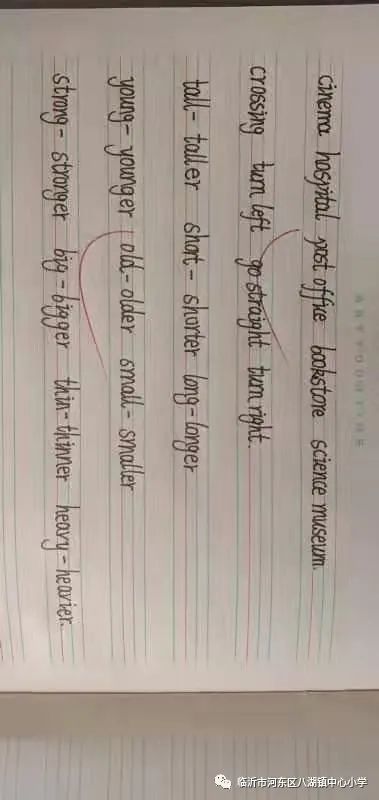 cinema hospital post office bookstore science museum.
crossing turn left go straight turn right.
tall- taller short- shorter long-longer
young- younger old-older small- smaller
strong- stronger big-bigger thin-thinner heavy-heavier.
临沂市河东区八湖镇中心小学